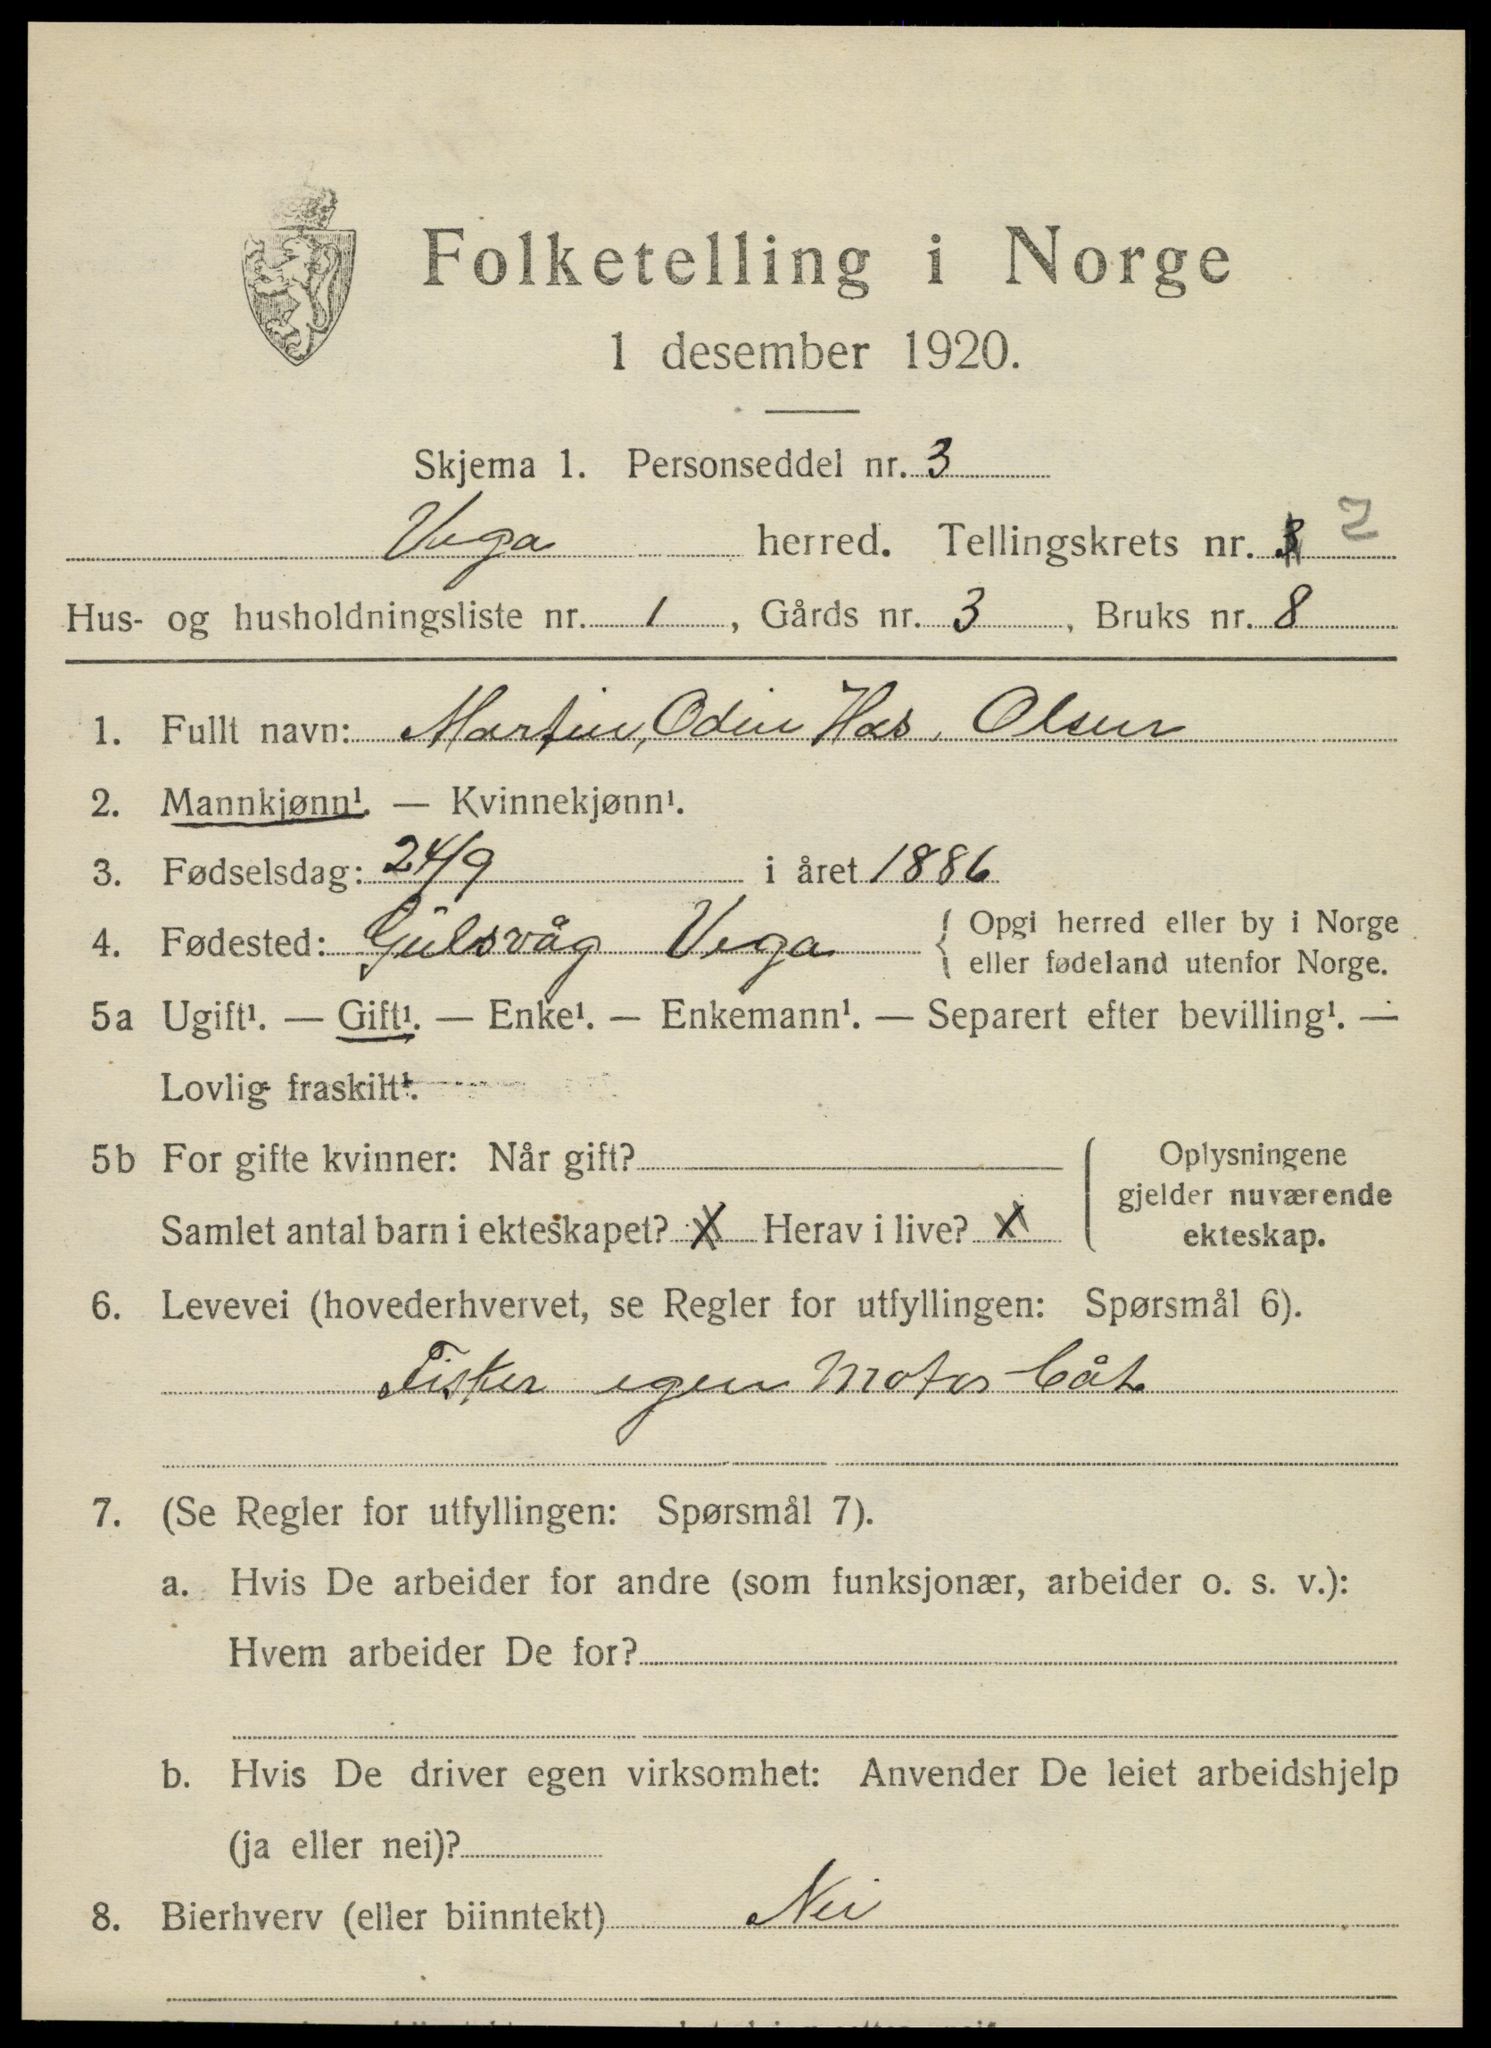 Folketelling i Norge
1 desember 1920.
Skjema 1. Personseddel nr. 3
Vega herred. Tellingskrets nr. 3 2
Hus- og husholdningsliste nr. 1, Gårds nr. 3, Bruks nr. 8
1. Fullt navn: Martin, Odin Has. Olsen
2. Mannkjønn¹. — Kvinnekjønn¹.
3. Fødselsdag: 24/9 i året 1886
4. Fødested: Gulsvåg Vega { Opgi herred eller by i Norge
eller fødeland utenfor Norge.
5a Ugift¹. — Gift¹. — Enke¹. — Enkemann¹. — Separert efter bevilling¹. —
Lovlig fraskilt¹.
5b For gifte kvinner: Når gift?
Samlet antal barn i ekteskapet? X Herav i live? X
Oplysningene
gjelder nuværende
ekteskap.
6. Levevei (hovederhvervet, se Regler for utfyllingen: Spørsmål 6).
Fisker egen Motor båt
7. (Se Regler for utfyllingen: Spørsmål 7).
a. Hvis De arbeider for andre (som funksjonær, arbeider o. s. v.):
Hvem arbeider De for?
b. Hvis De driver egen virksomhet: Anvender De leiet arbeidshjelp
(ja eller nei)?
8. Bierhverv (eller biinntekt) Nei